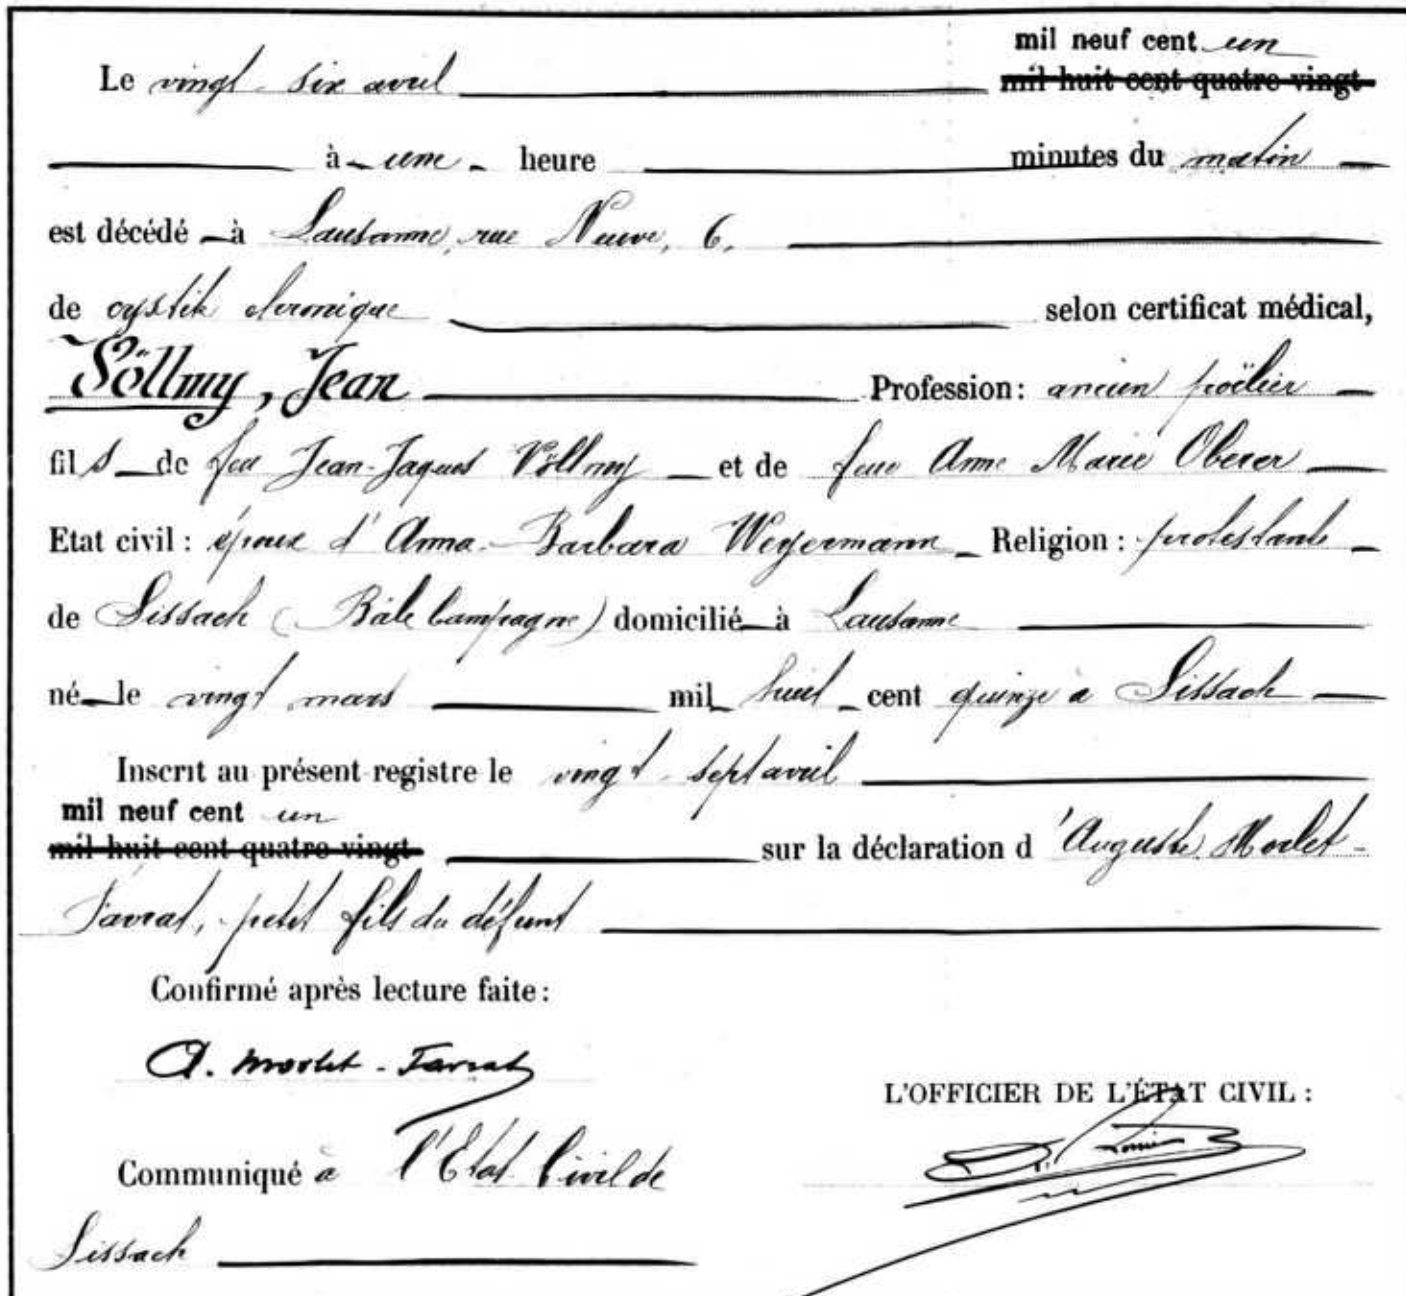 mil neuf cent un
Le vingt-six avril mil huit cent quatre-vingt
à une heure minutes du matin
est décédé à Lausanne, rue Neuve, 6,
de cystite chronique selon certificat médical,
Völlmy, Jean Profession: ancien poëlier
fils de feu Jean-Jaques Völlmy et de feue Anne Marie Oberer
Etat civil: époux d'Anna-Barbara Weyermann Religion: protestante
de Sissach (Bâle Campagne) domicilié à Lausanne
né le vingt mars mil huit cent quinze à Sissach
Inscrit au présent registre le vingt-sept avril
mil neuf cent un
mil huit cent quatre-vingt sur la déclaration d'Auguste Morlet-
Favrat, petit fils du défunt
Confirmé après lecture faite:
A. Morlet-Favrat
L'OFFICIER DE L'ÉTAT CIVIL:
Communiqué à l'Etat Civil de
Sissach